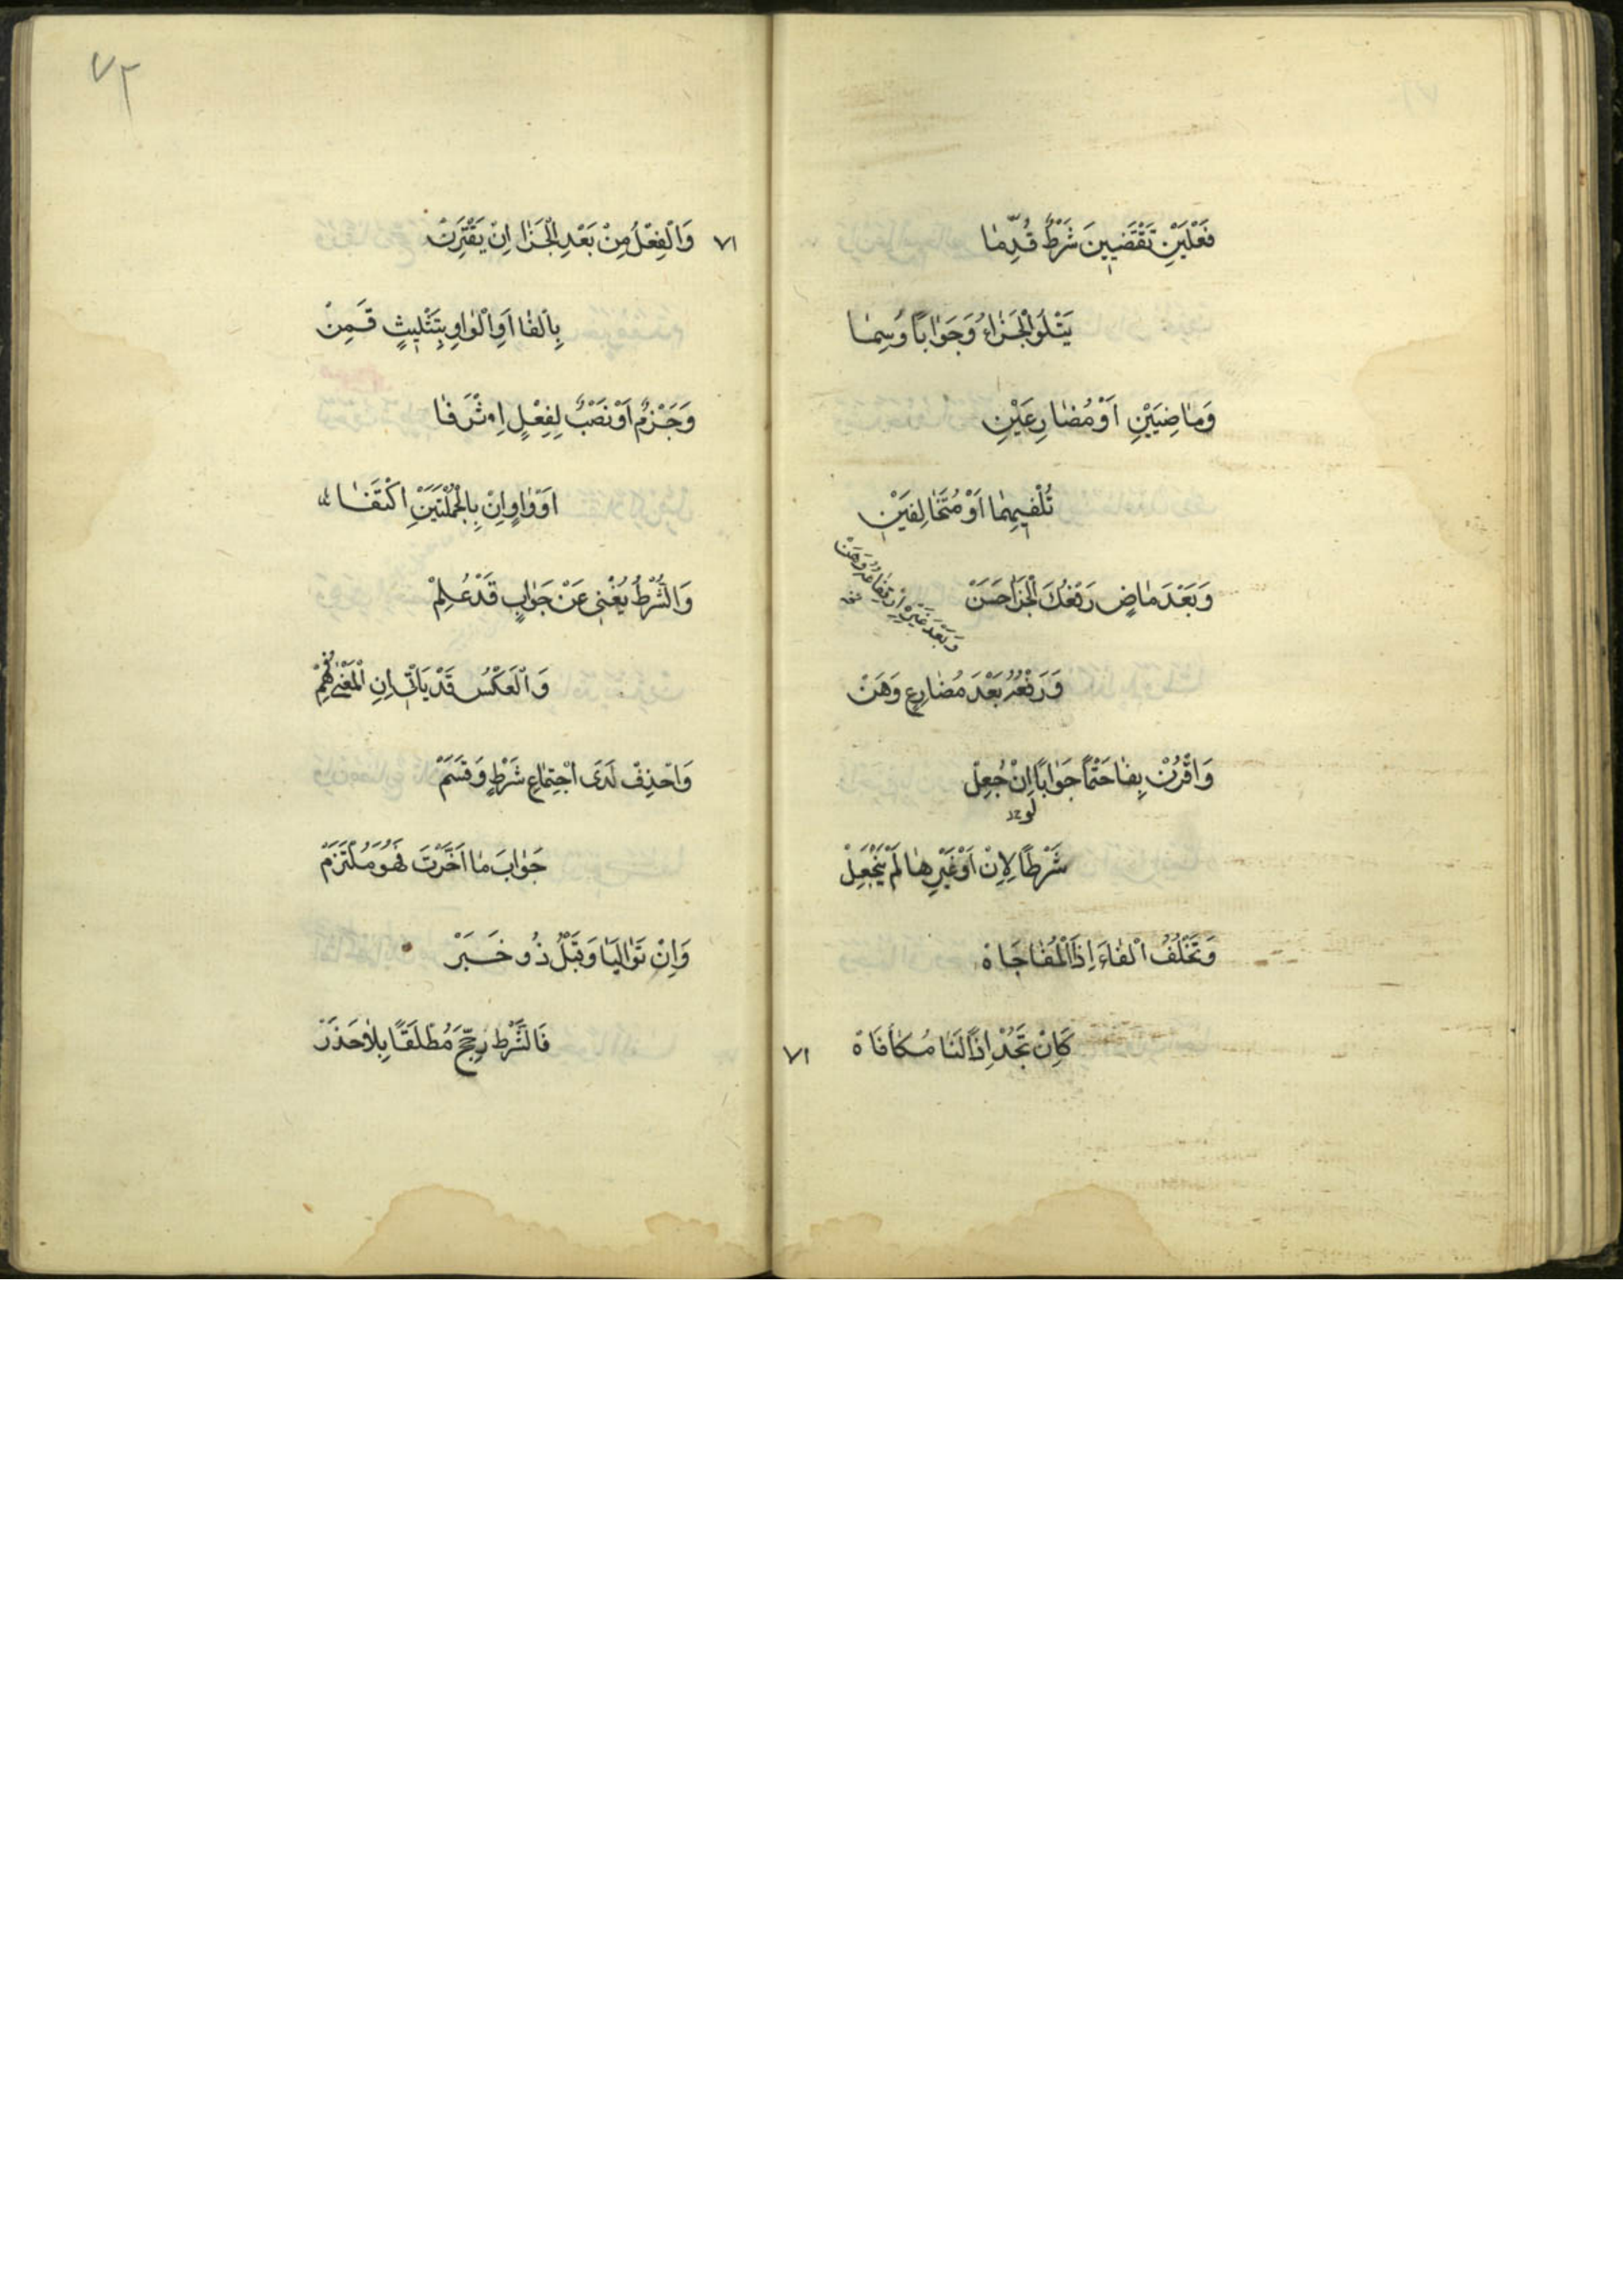 فِعْلَيْنِ تَقْتَضِينَ شَرْطٌ قُدِّمَا
يَتْلُو الْجَزَاءُ وَجَوَابًا وُسِمَا
وَمَاضِيَيْنِ اَوْ مُضَارِعَيْنِ
تُلْفِيهِمَا اَوْ مُتَخَالِفَيْنِ
وَبَعْدَ مَاضٍ رَفْعُكَ الْجَزَا حَسَنْ
وَبَعْدَ غَيْرِ
وَرَفْعُهُ بَعْدَ مُضَارِعٍ وَهَنْ
وَاقْرُنْ بِفَا حَتْمًا جَوَابًا اِنْ جُعِلْ
لَوْ
شَرْطًا لِاِنْ اَوْ غَيْرِهَا لَمْ يَنْجَعِلْ
وَتَخْلُفُ الْفَاءَ اِذَا الْمُفَاجَاةْ
كَاِنْ تَجُدْ اِذًا لَنَا مُكَافَاةْ
٧١
٧٢
٧١
وَالْفِعْلُ مِنْ بَعْدِ الْجَزَا اِنْ يَقْتَرِنْ
بِالْفَا اَوِ الْوَاوِ بِتَثْلِيثٍ قَمِنْ
وَجَزْمٌ اَوْ نَصْبٌ لِفِعْلٍ اِثْرَ فَا
اَوْ وَاوٍ اِنْ بِالْجُمْلَتَيْنِ اكْتَنَفَا
وَالشَّرْطُ يُغْنِي عَنْ جَوَابٍ قَدْ عُلِمْ
وَالْعَكْسُ قَدْ يَاْتِي اِنِ الْمَعْنَى فُهِمْ
وَاحْذِفْ لَدَى اجْتِمَاعِ شَرْطٍ وَقَسَمْ
جَوَابَ مَا اَخَّرْتَ فَهُوَ مُلْتَزَمْ
وَاِنْ تَوَالَيَا وَقَبْلُ ذُو خَبَرْ
فَالشَّرْطَ رَجِّحْ مُطْلَقًا بِلَا حَذَرْ